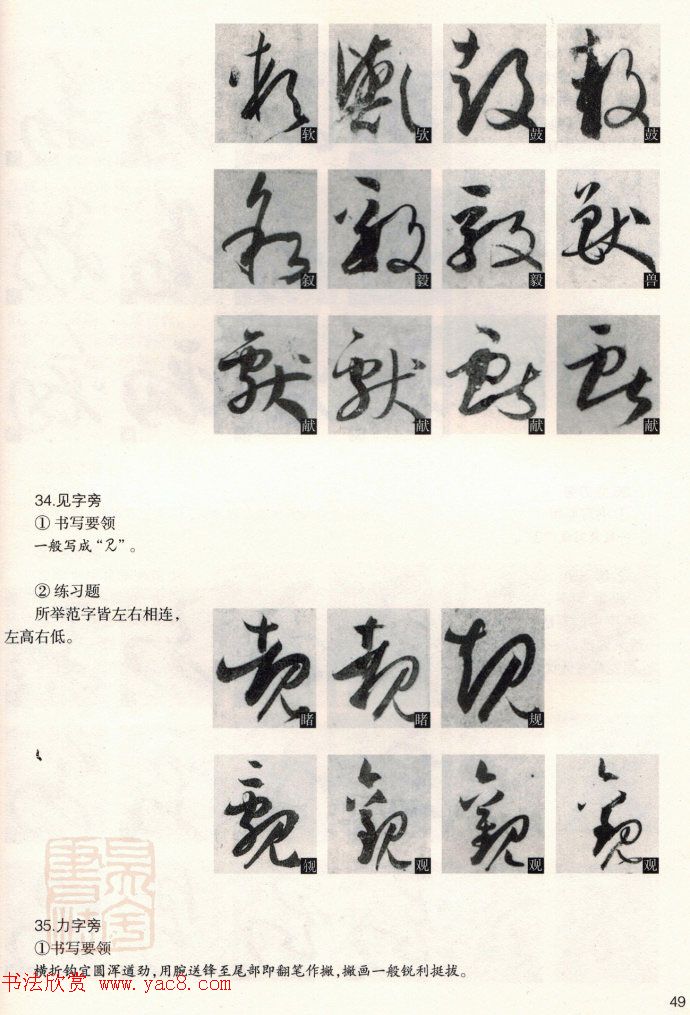 软 欤 鼓 鼓
叙 毅 毅 兽
献 献 献 献
34.见字旁
①书写要领
一般写成“ ”。
②练习题
所举范字皆左右相连，
左高右低。
睹 睹 规
观 观 观
35.力字旁
①书写要领
横折钩宜圆浑遒劲，用腕送锋至尾部即翻笔作撇，撇画一般锐利挺拔。
书法欣赏 www.yac8.com
49